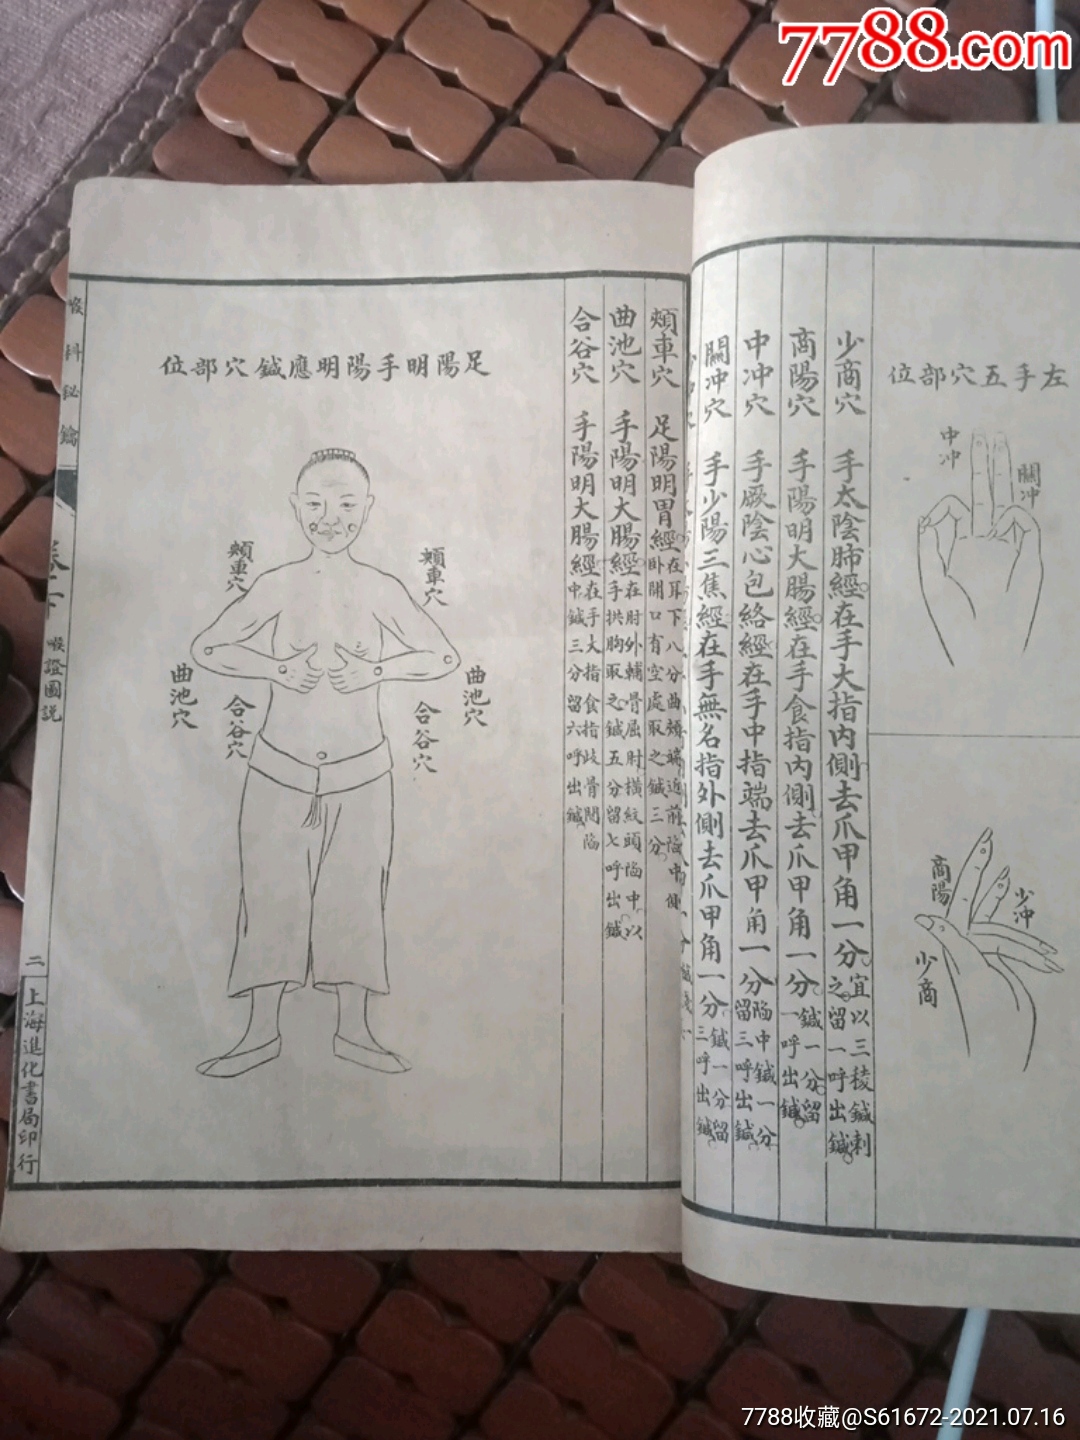 7788.com
左手五穴部位
中冲
關冲
商陽
少冲
少商
少商穴 手太陰肺經在手大指內側去爪甲角一分宜以三稜鍼刺之留一呼出鍼
商陽穴 手陽明大腸經在手食指內側去爪甲角一分鍼一分留一呼出鍼
中冲穴 手厥陰心包絡經在手中指端去爪甲角一分陷中鍼一分留三呼出鍼
關冲穴 手少陽三焦經在手無名指外側去爪甲角一分鍼一分留三呼出鍼
頰車穴 足陽明胃經在耳下八分曲頰端近前陷中側臥開口有空處取之鍼三分
曲池穴 手陽明大腸經在肘外輔骨屈肘橫紋頭陷中以手拱胸取之鍼五分留七呼出鍼
合谷穴 手陽明大腸經在手大指食指歧骨間陷中鍼三分留六呼出鍼
足陽明手陽明應鍼穴部位
頰車穴
頰車穴
曲池穴
合谷穴
合谷穴
曲池穴
喉科秘鑰
卷下
喉證圖説
二
上海進化書局印行
7788收藏@S61672-2021.07.16